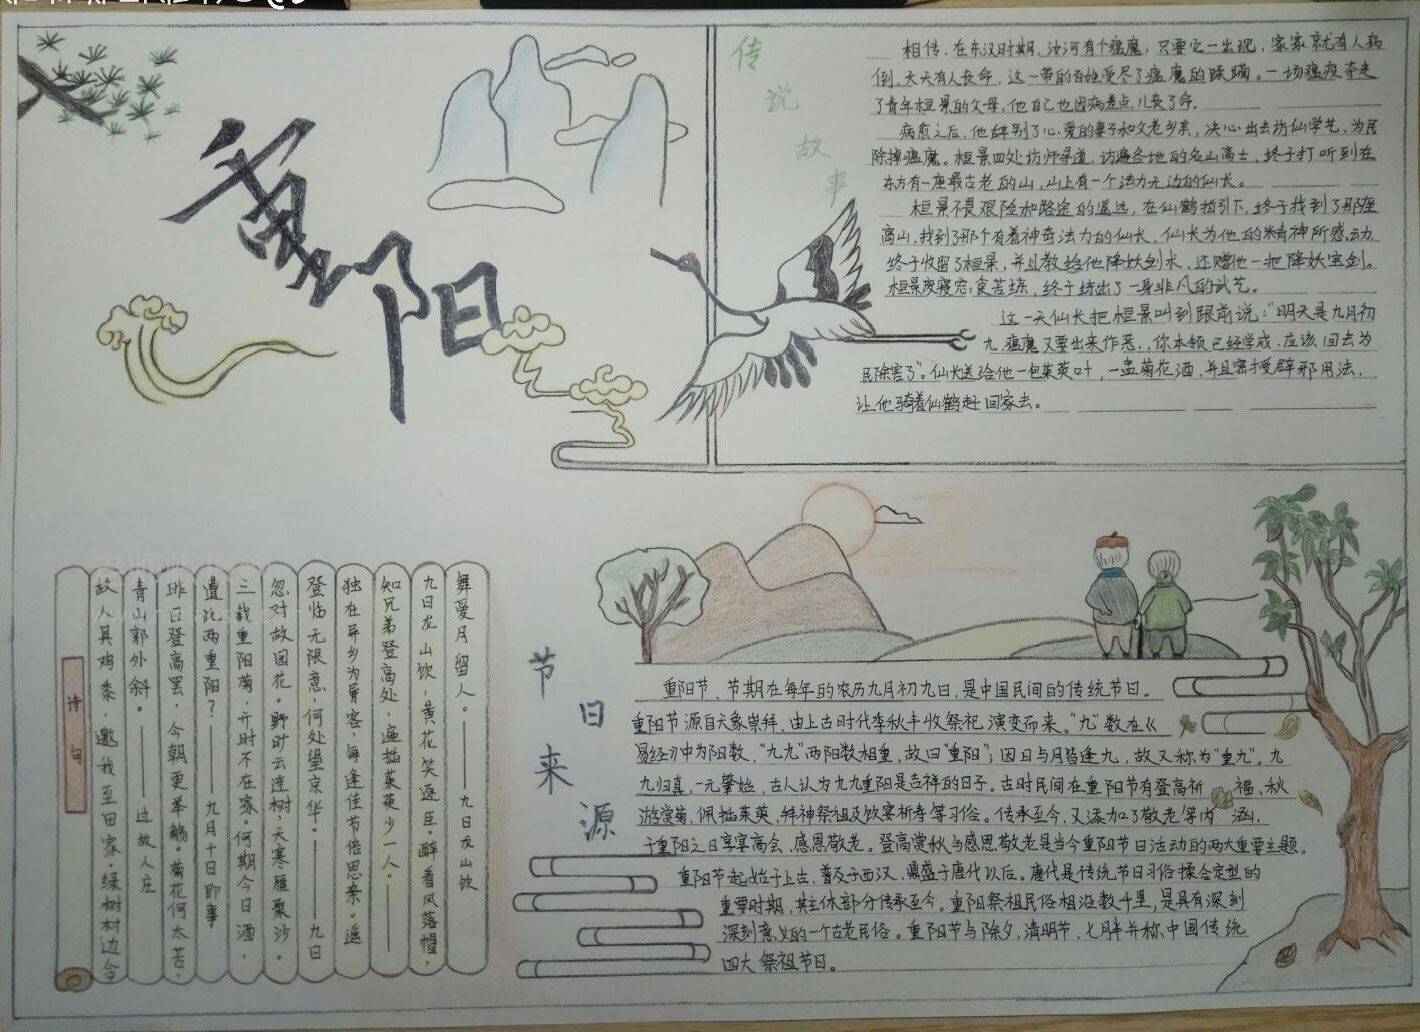 重阳
传说故事
相传,在东汉时期,汝河有个瘟魔,只要它一出现,家家就有人病
倒,天天有人丧命,这一带的百姓受尽了瘟魔的蹂躏。一场瘟疫夺走
了青年桓景的父母,他自己也因病差点儿丧了命。
病愈之后,他辞别了心爱的妻子和父老乡亲,决心出去访仙学艺,为民
除掉瘟魔。桓景四处访师寻道,访遍各地的名山高士,终于打听到在
东方有一座最古老的山,山上有一个法力无边的仙长。
桓景不畏艰险和路途的遥远,在仙鹤指引下,终于找到了那座
高山,找到了那个有着神奇法力的仙长,仙长为他的精神所感动,
终于收留了桓景,并且教给他降妖剑术,还赠他一把降妖宝剑。
桓景废寝忘食苦练,终于练出了一身非凡的武艺。
这一天仙长把桓景叫到跟前说:“明天是九月初
九,瘟魔又要出来作恶,你本领已经学成,应该回去为
民除害了”。仙长送给他一包茱萸叶,一盅菊花酒,并且密授辟邪用法,
让他骑着仙鹤赶回家去。
节日来源
重阳节、节期在每年的农历九月初九日,是中国民间的传统节日。
重阳节源自天象崇拜,由上古时代季秋丰收祭祀,演变而来。“九”数在《
易经》中为阳数,“九九”两阳数相重,故曰“重阳”;因日与月皆逢九,故又称为“重九”。九
九归真,一元肇始,古人认为九九重阳是吉祥的日子。古时民间在重阳节有登高祈福、秋
游赏菊、佩插茱萸、拜神祭祖及饮宴祈寿等习俗。传承至今,又添加了敬老等内涵,
于重阳之日享宴高会,感恩敬老。登高赏秋与感恩敬老是当今重阳节日活动的两大重要主题。
重阳节起始于上古,普及于西汉,鼎盛于唐代以后。唐代是传统节日习俗揉合定型的
重要时期,其主体部分传承至今。重阳祭祖民俗相沿数千里,是具有深刻
深刻意义的一个古老民俗。重阳节与除夕、清明节、七月半并称中国传统
四大祭祖节日。
舞爱月留人。——九日龙山饮
九日龙山饮,黄花笑逐臣。醉看风落帽,
知兄弟登高处,遍插茱萸少一人。——
独在异乡为异客,每逢佳节倍思亲。遥
登临无限意,何处望京华。——九日
忽对故园花。野旷云连树,天寒雁聚沙。
三载重阳菊,开时不在家。何期今日酒,
遭此两重阳?——九月十日即事
昨日登高罢,今朝更举觞。菊花何太苦,
青山郭外斜。——过故人庄
故人具鸡黍,邀我至田家。绿树村边合
诗句